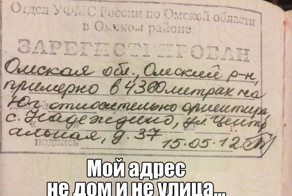 Отдел УФМС России по Омской области
в Омском районе
ЗАРЕГИСТРИРОВАН
Омская обл., Омский р-н,
примерно в 4300 метрах на
Юг относительно ориентира
с. Надеждино, ул. Центр
альная, д. 37
подпись
15.05.12
Мой адрес
не дом и не улица...